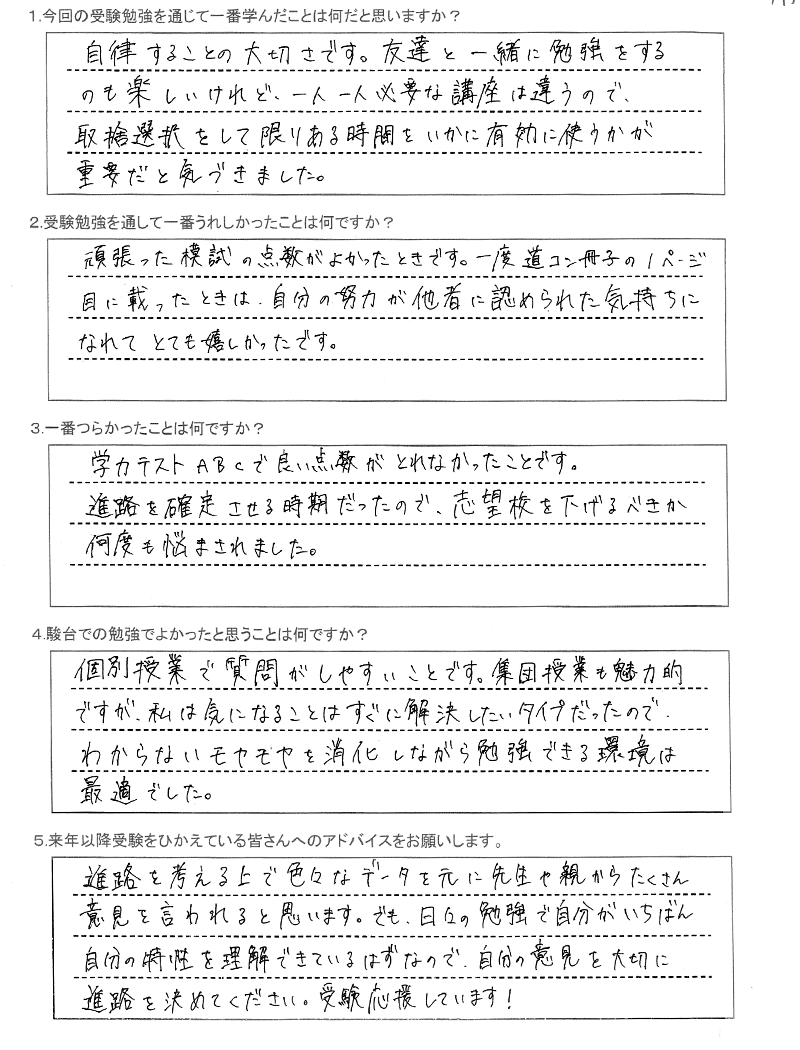 1.今回の受験勉強を通じて一番学んだことは何だと思いますか？
自律することの大切さです。友達と一緒に勉強をする
のも楽しいけれど、一人一人必要な講座は違うので、
取捨選択をして限りある時間をいかに有効に使うかが
重要だと気づきました。
2.受験勉強を通して一番うれしかったことは何ですか？
頑張った模試の点数がよかったときです。一度道コン冊子の1ページ
目に載ったときは、自分の努力が他者に認められた気持ちに
なれてとても嬉しかったです。
3.一番つらかったことは何ですか？
学力テストABCで良い点数がとれなかったことです。
進路を確定させる時期だったので、志望校を下げるべきか
何度も悩まされました。
4.駿台での勉強でよかったと思うことは何ですか？
個別授業で質問がしやすいことです。集団授業も魅力的
ですが、私は気になることはすぐに解決したいタイプだったので、
わからないモヤモヤを消化しながら勉強できる環境は
最適でした。
5.来年以降受験をひかえている皆さんへのアドバイスをお願いします。
進路を考える上で色々なデータを元に先生や親からたくさん
意見を言われると思います。でも、日々の勉強で自分がいちばん
自分の特性を理解できているはずなので、自分の意見を大切に
進路を決めてください。受験応援しています！